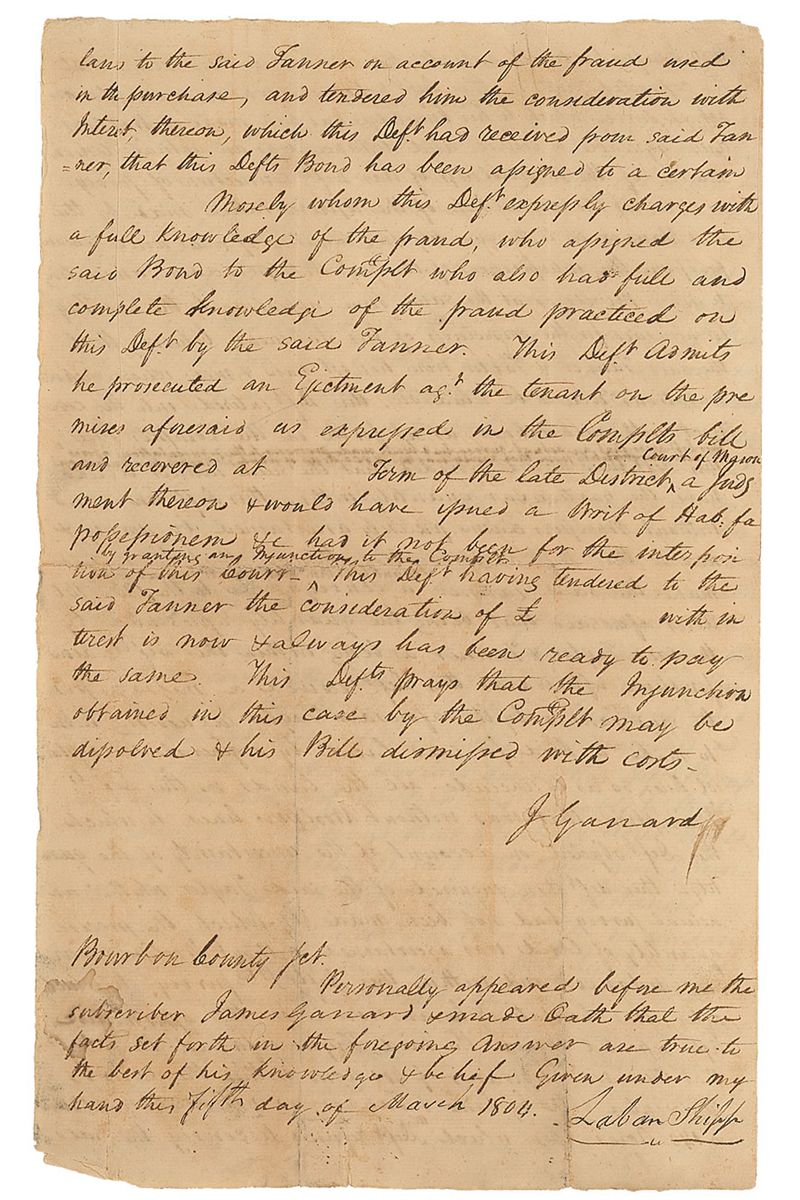 lam to the said Tanner on account of the fraud used
in the purchase, and tendered him the consideration with
Interet, thereon, which this Deft had received from said Tan
=ner, that this Defts Bond has been assigned to a certain
Mosely whom this Deft expressly charges with
a full knowledge of the fraud, who assigned the
said Bond to the Complt who also had full and
complete knowledge of the fraud practiced on
this Deft by the said Tanner. This Deft Admits
he prosecuted an Ejectment agt the tenant on the pre
mises aforesaid as expressed in the Complts bill
and recovered at Term of the late District Court of Mason a Judg
ment thereon & would have issued a Writ of Hab. fa
possessionem &c had it not been for the interposi
tion of this Court by granting an Injunction to the Complt - This Deft having tendered to the
said Tanner the consideration of £ with in
terest is now & always has been ready to pay
the same. This Defts prays that the Injunction
obtained in this case by the Complt may be
dissolved & his Bill dismissed with costs -
J Garrard
Bourbon County sct.
Personally appeared before me the
subscriber James Garrard & made Oath that the
facts set forth in the foregoing Answer are true to
the best of his knowledge & belief Given under my
hand this fifth day of March 1804.
Laban Shipp